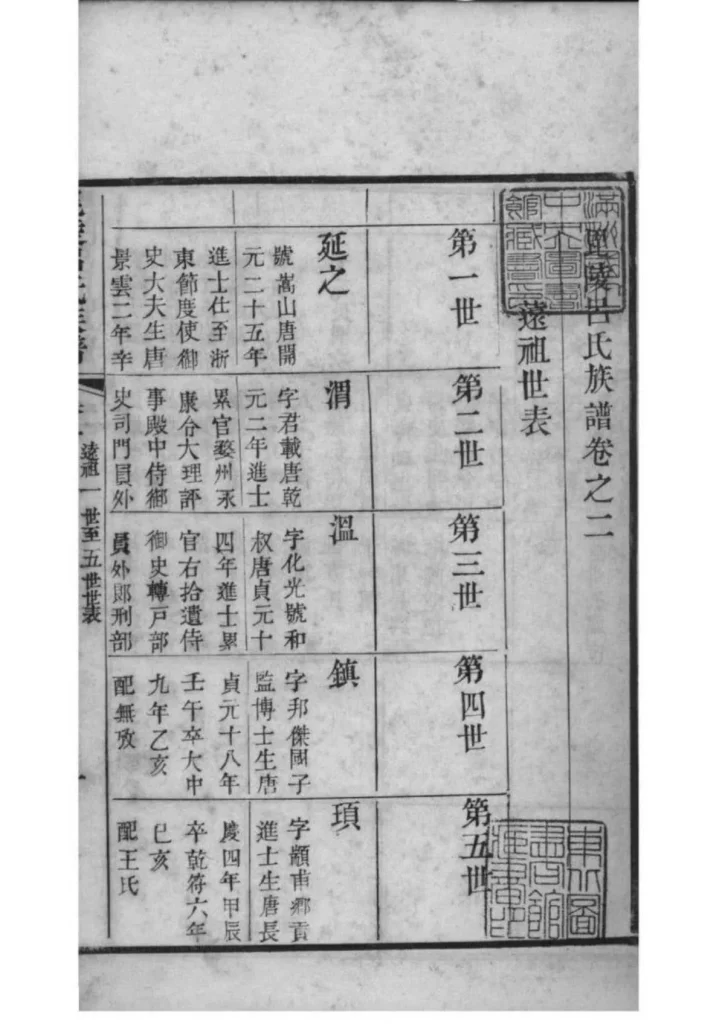 毘陵呂氏族譜卷之二
遠祖世表
第一世
延之
號嵩山唐開
元二十五年
進士仕至浙
東節度使御
史大夫生唐
景雲二年辛
第二世
渭
字君載唐乾
元二年進士
累官婺州永
康令大理評
事殿中侍御
史司門員外
第三世
溫
字化光號和
叔唐貞元十
四年進士累
官右拾遺侍
御史轉戸部
員外郞刑部
第四世
鎮
字邦傑國子
監博士生唐
貞元十八年
壬午卒大中
九年乙亥
配無攷
第五世
頊
字顓甫鄉貢
進士生唐長
慶四年甲辰
卒乾符六年
己亥
配王氏
遠祖一世至五世世表